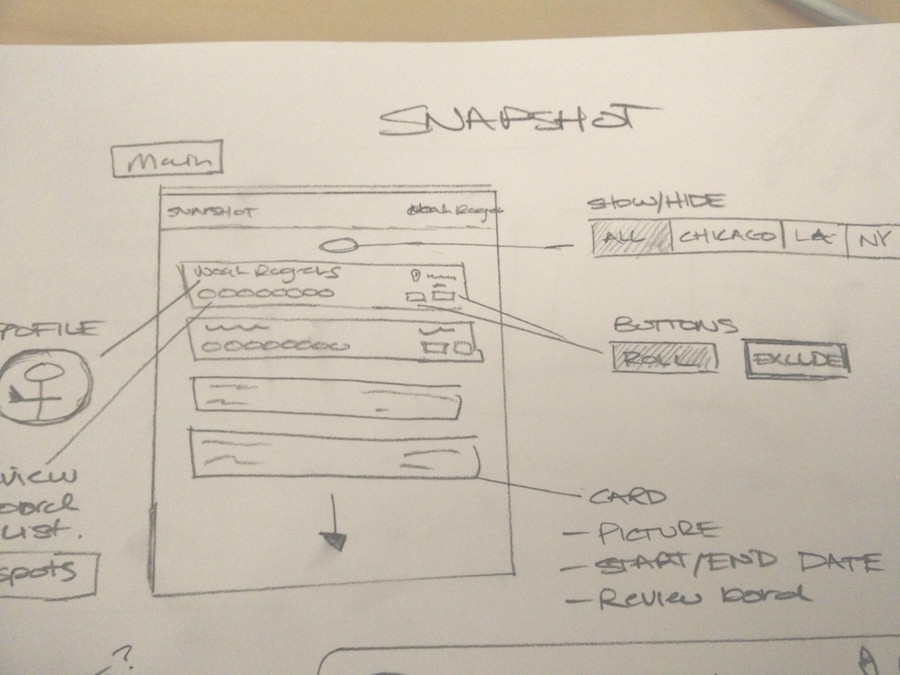 SNAPSHOT
Main
SNAPSHOT
Noah Rogers
SHOW/HIDE
ALL CHICAGO LA NY
Noah Rogers
POFILE
BUTTONS
ROLL EXCLUDE
view
board
List.
spots
CARD
- PICTURE
- START/END DATE
- Review bord
?